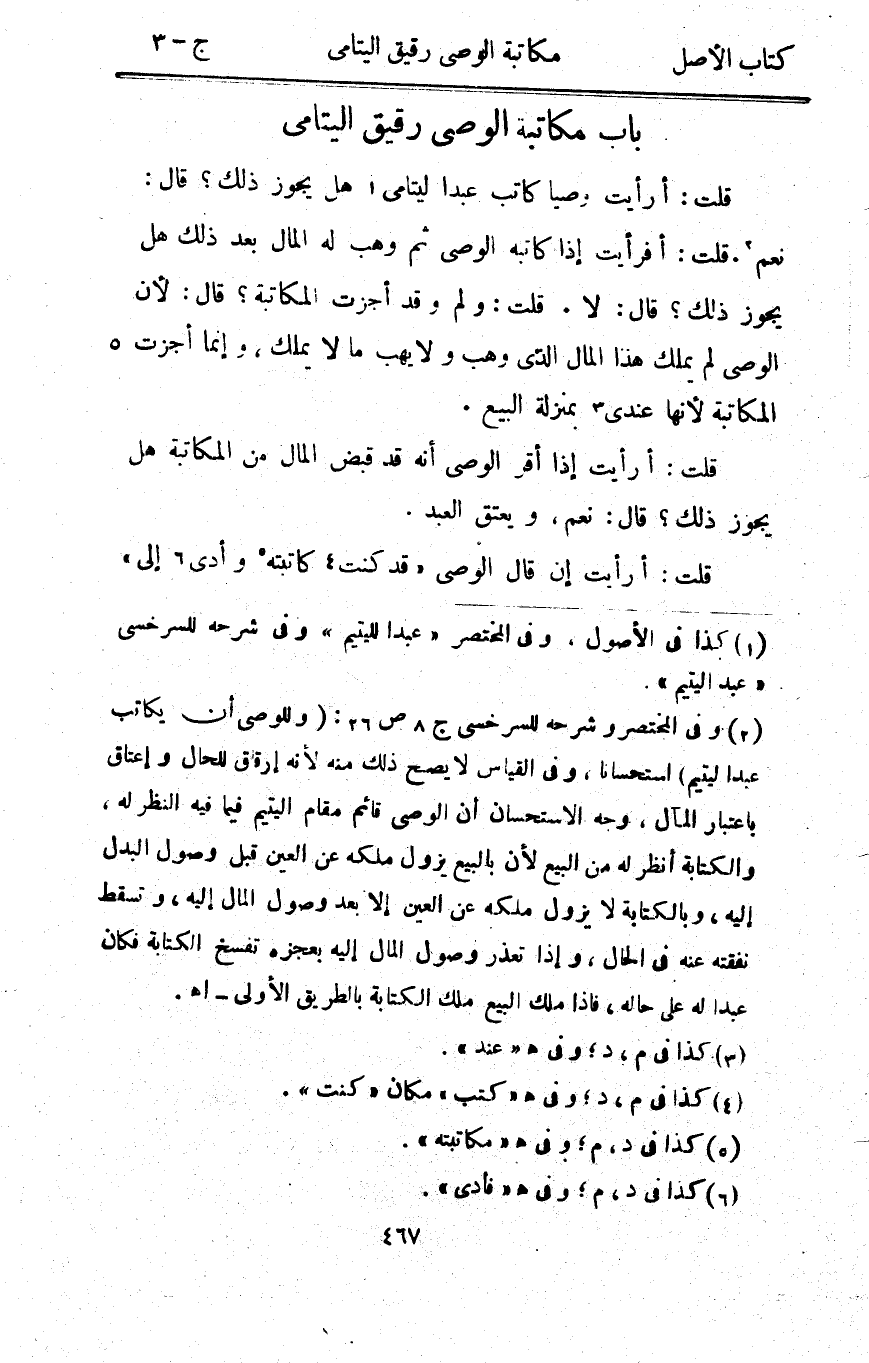 كتاب الأصل مكاتبة الوصى رقيق اليتامى ج – ٣
باب مكاتبة الوصى رقيق اليتامى
قلت: أ رأيت وصيا كاتب عبدا ليتامى١ هل يجوز ذلك؟ قال:
نعم٢. قلت: أ فرأيت إذا كاتبه الوصى ثم وهب له المال بعد ذلك هل
يجوز ذلك؟ قال: لا . قلت: و لم و قد أجزت المكاتبة؟ قال: لأن
الوصى لم يملك هذا المال الذى وهب و لا يهب ما لا يملك، و إنما أجزت ٥
المكاتبة لأنها عندى٣ بمنزلة البيع .
قلت: أ رأيت إذا أقر الوصى أنه قد قبض المال من المكاتبة هل
يجوز ذلك؟ قال: نعم، و يعتق العبد .
قلت: أ رأيت إن قال الوصى «قد كنت٤ كاتبته٥ و أدى٦ إلى»
(١) كذا فى الأصول ، و فى المختصر «عبدا لليتيم» و فى شرحه للسرخسى
«عبد اليتيم» .
(٢) و فى المختصر و شرحه للسرخسى ج ٨ ص ٢٦ : ( و للوصى أن يكاتب
عبدا ليتيم) استحسانا ، و فى القياس لا يصح ذلك منه لأنه إرقاق للحال و إعتاق
باعتبار المآل ، وجه الاستحسان أن الوصى قائم مقام اليتيم فيما فيه النظر له ،
والكتابة أنظر له من البيع لأن بالبيع يزول ملكه عن العين قبل وصول البدل
إليه ، و بالكتابة لا يزول ملكه عن العين إلا بعد وصول المال إليه ، و تسقط
نفقته عنه فى الحال ، و إذا تعذر وصول المال إليه بعجزه تفسخ الكتابة فكان
عبدا له على حاله ، فاذا ملك البيع ملك الكتابة بالطريق الأولى – اه .
(٣) كذا فى م ، د ؛ و فى ه «عند» .
(٤) كذا فى م ، د ؛ و فى ه «كتب» مكان «كنت» .
(٥) كذا فى د ، م ؛ و فى ه «مكاتبته» .
(٦) كذا فى د ، م ؛ و فى ه «فأدى» .
٤٦٧